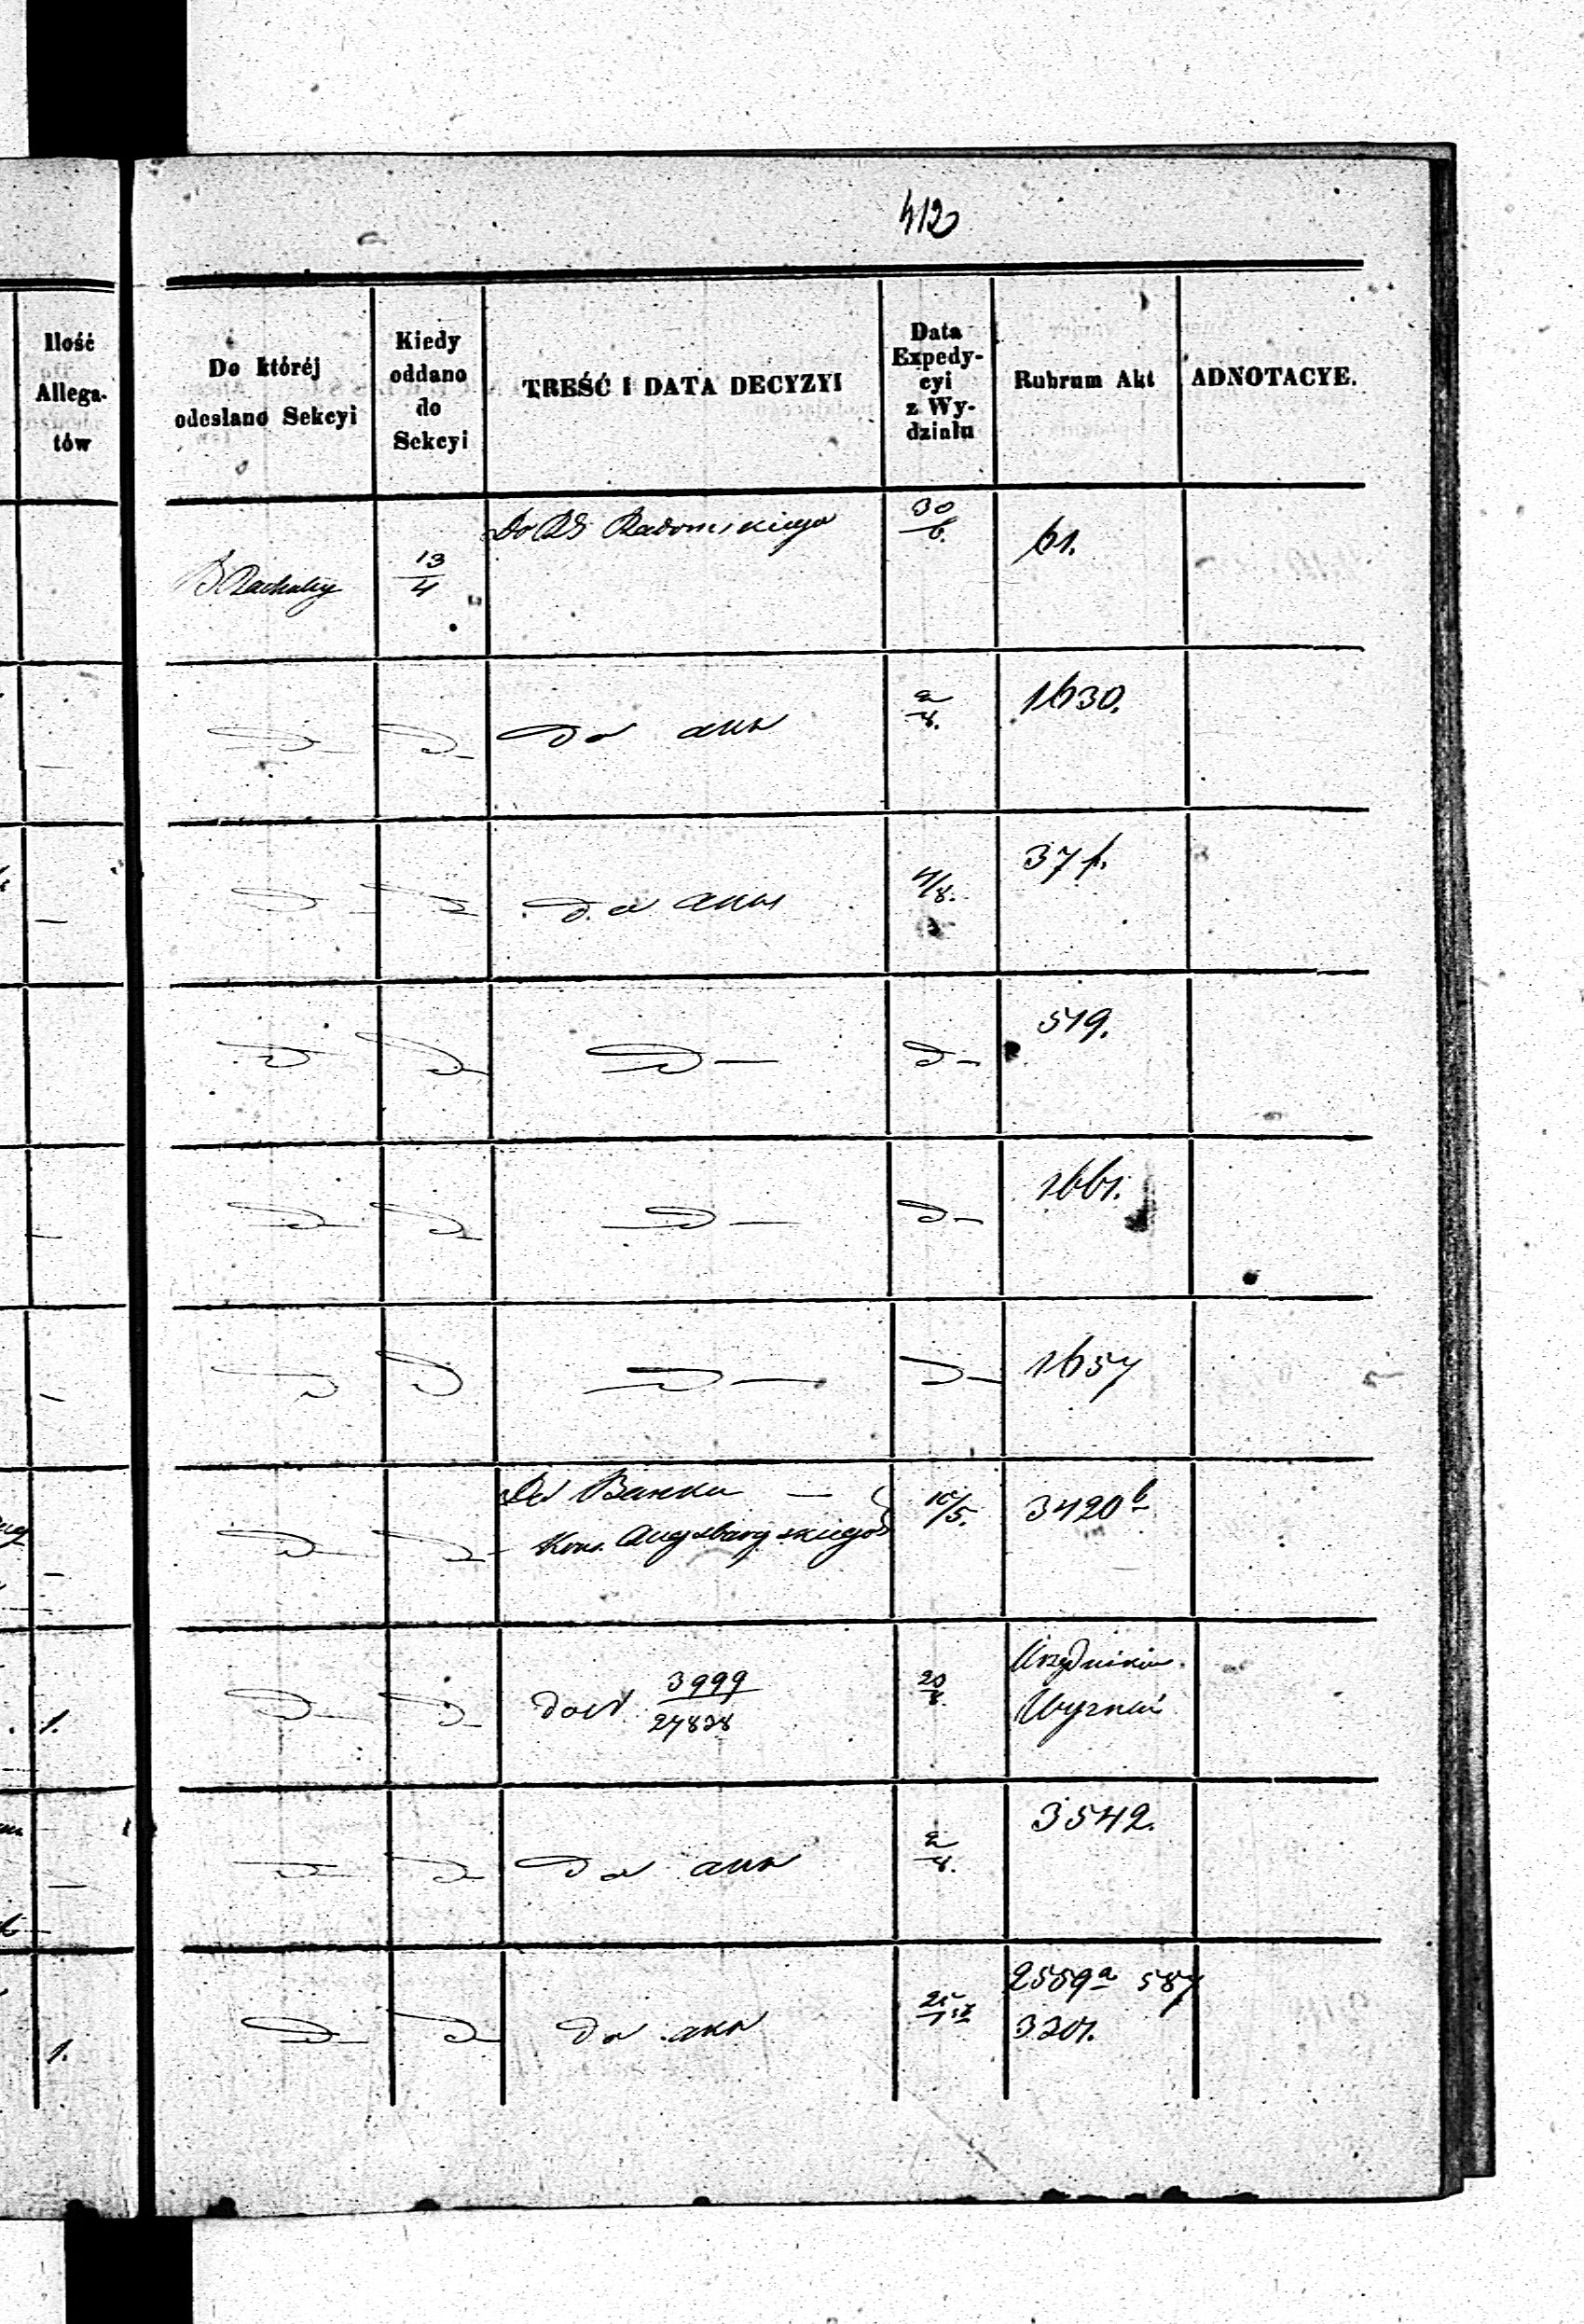 412
Ilość
Allega-
tów
Do któréj
odesłano Sekcyi
Kiedy
oddano
do
Sekcyi
TREŚĆ I DATA DECYZYI
Data
Expedy-
cyi
z Wy-
działu
Rubrum Akt
ADNOTACYE.
Do RG Radomskiego
30/6.
61.
B Rachuby
13/4
do akt
2/8.
1630.
do akt
4/8.
37 f.
519.
1661.
1657
Do Banku —
Kons. Augsburgskiego
10/5.
3420 b
1.
do N 3999/27838
20/8.
Urzędników
Wyznań
do akt
2/8.
3542.
1.
do akt
2559a 587
3201.